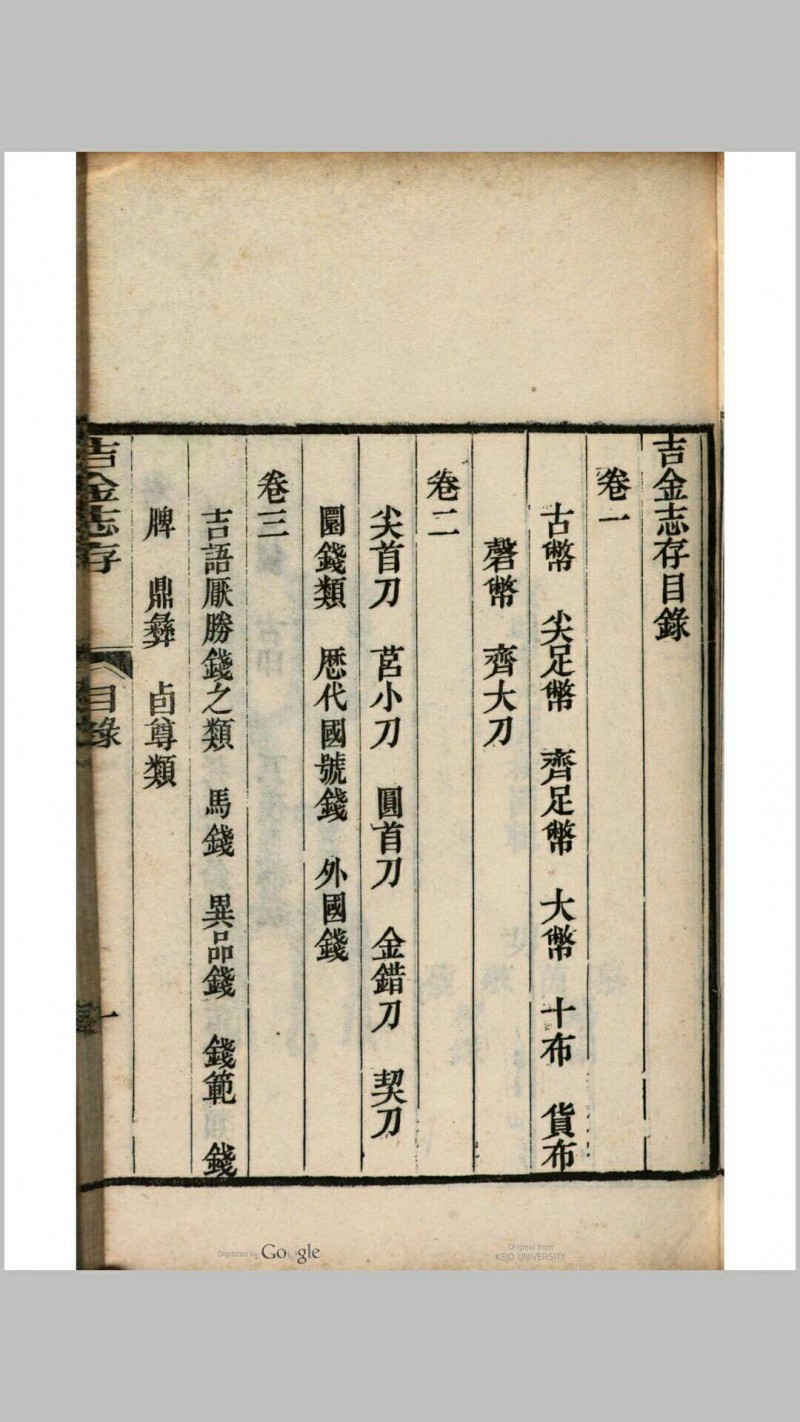 吉金志存目錄
卷一
古幣 尖足幣 齊足幣 大幣 十布 貨布
磬幣 齊大刀
卷二
尖首刀 莒小刀 圓首刀 金錯刀 契刀
圜錢類 歷代國號錢 外國錢
卷三
吉語厭勝錢之類 馬錢 異品錢 錢範 錢
牌 鼎彝 卣尊類
吉金志存 目錄 一
Digitized by Google
Original from
KEIO UNIVERSITY